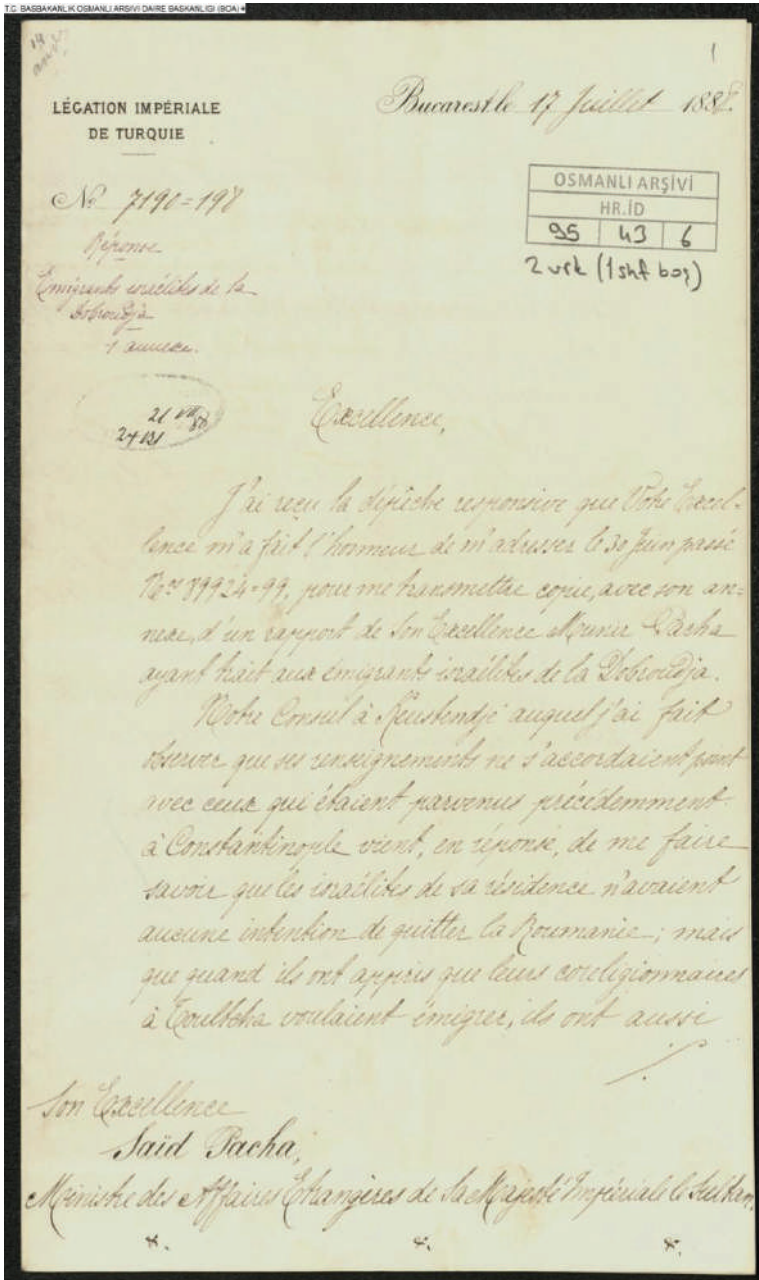 T.C. BASBAKANLIK OSMANLI ARSIVI DAIRE BASKANLIGI (BOA)
1
LÉGATION IMPÉRIALE
DE TURQUIE
Bucarest, le 17 Juillet 188
No 7190=198
Réponse
Émigrants israélites de la
Dobroudja
1 annexe.
OSMANLI ARŞİVİ
HR.İD
95 43 6
2 vrk (1 shf boş)
21 VII 88
Excellence,
J'ai reçu la dépêche responsive que Votre Excel-
lence m'a fait l'honneur de m'adresser le 30 Juin passé
Nos 89924=99, pour me transmettre copie, avec son an-
nexe, d'un rapport de Son Excellence Munir Pacha
ayant trait aux émigrants israélites de la Dobroudja.
Notre Consul à Keustendjé auquel j'ai fait
observer que ses renseignements ne s'accordaient point
avec ceux qui étaient parvenus précédemment
à Constantinople vient, en réponse, de me faire
savoir que les israélites de sa résidence n'avaient
aucune intention de quitter la Roumanie; mais
que quand ils ont appris que leurs coreligionnaires
à Toultcha voulaient émigrer, ils ont aussi
Son Excellence
Saïd Pacha,
Ministre des Affaires Etrangères de Sa Majesté Impériale le Sultan.